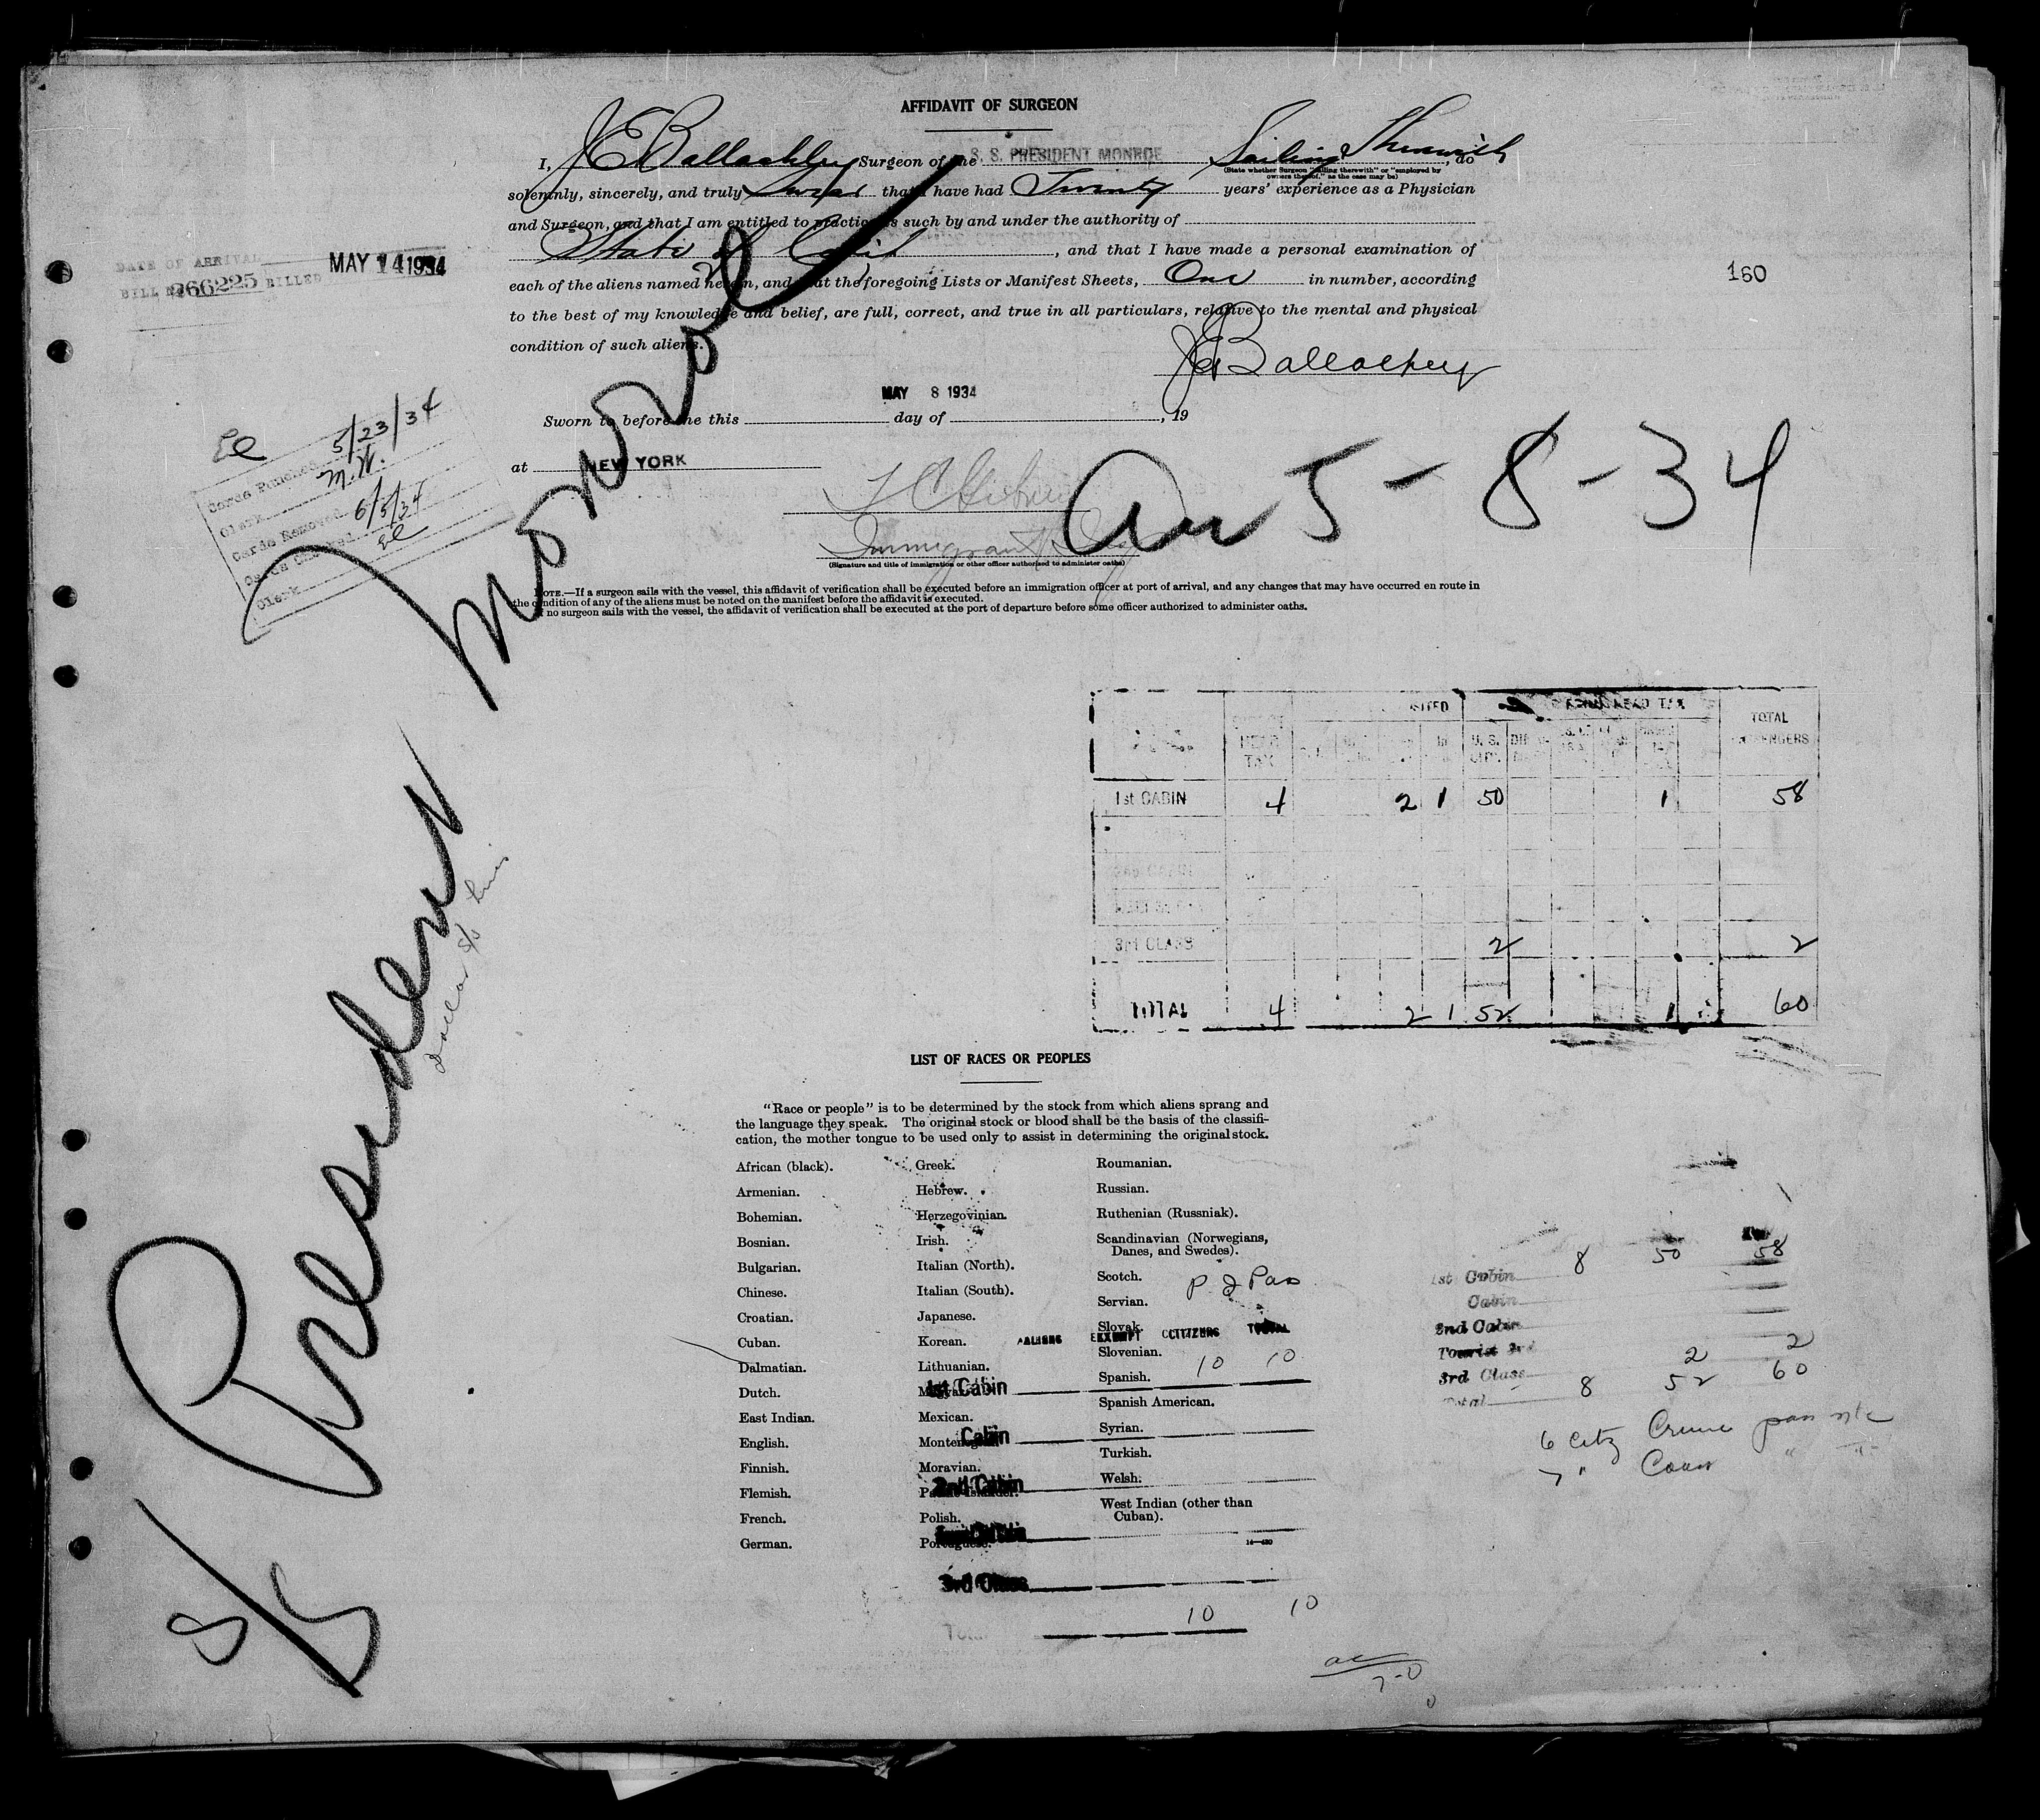 AFFIDAVIT OF SURGEON
I, J E Ballachey Surgeon of the S. S. PRESIDENT MONROE Sailing Therewith, do
(State whether Surgeon "sailing therewith" or "employed by owners thereof," as the case may be)
solemnly, sincerely, and truly Swear that I have had Twenty years' experience as a Physician
and Surgeon, and that I am entitled to practice as such by and under the authority of
State of Calif, and that I have made a personal examination of
each of the aliens named herein, and that the foregoing Lists or Manifest Sheets, One in number, according
to the best of my knowledge and belief, are full, correct, and true in all particulars, relative to the mental and physical
condition of such aliens.
J E Ballachey
DATE OF ARRIVAL
MAY 14 1934
BILL No. 266225 BILLED
160
MAY 8 1934
Sworn to before me this day of , 19
at NEW YORK
Immigrant
(Signature and title of immigration or other officer authorized to administer oaths)
Arr 5-8-34
El
Cards Punched 5/23/34
Clerk M.W.
Cards Removed 6/5/34
Cards Checked El
Clerk
NOTE.—If a surgeon sails with the vessel, this affidavit of verification shall be executed before an immigration officer at port of arrival, and any changes that may have occurred en route in
the condition of any of the aliens must be noted on the manifest before the affidavit is executed.
If no surgeon sails with the vessel, the affidavit of verification shall be executed at the port of departure before some officer authorized to administer oaths.
S/S President Monroe
Dollar S/S Line
HEAD TAX
U. S.
TOTAL
PASSENGERS
1st CABIN 4 2 1 50 1 58
2nd CABIN
3rd CLASS 2 2
TOTAL 4 2 1 52 1 60
LIST OF RACES OR PEOPLES
"Race or people" is to be determined by the stock from which aliens sprang and
the language they speak. The original stock or blood shall be the basis of the classifi-
cation, the mother tongue to be used only to assist in determining the original stock.
African (black).
Armenian.
Bohemian.
Bosnian.
Bulgarian.
Chinese.
Croatian.
Cuban.
Dalmatian.
Dutch.
East Indian.
English.
Finnish.
Flemish.
French.
German.
Greek.
Hebrew.
Herzegovinian.
Irish.
Italian (North).
Italian (South).
Japanese.
Korean.
Lithuanian.
Magyar.
Mexican.
Montenegrin.
Moravian.
Pacific Islander.
Polish.
Portuguese.
Roumanian.
Russian.
Ruthenian (Russniak).
Scandinavian (Norwegians,
Danes, and Swedes).
Scotch.
Servian.
Slovak.
Slovenian.
Spanish.
Spanish American.
Syrian.
Turkish.
Welsh.
West Indian (other than
Cuban).
14—480
ALIENS EXEMPT CITIZENS TOTAL
1st Cabin 10 10
Cabin
2nd Cabin
3rd Class
Total 10 10
1st Cabin 8 50 58
Cabin
2nd Cabin
Tourist 3rd
3rd Class 2 2
Total 8 52 60
6 Citz
7 "